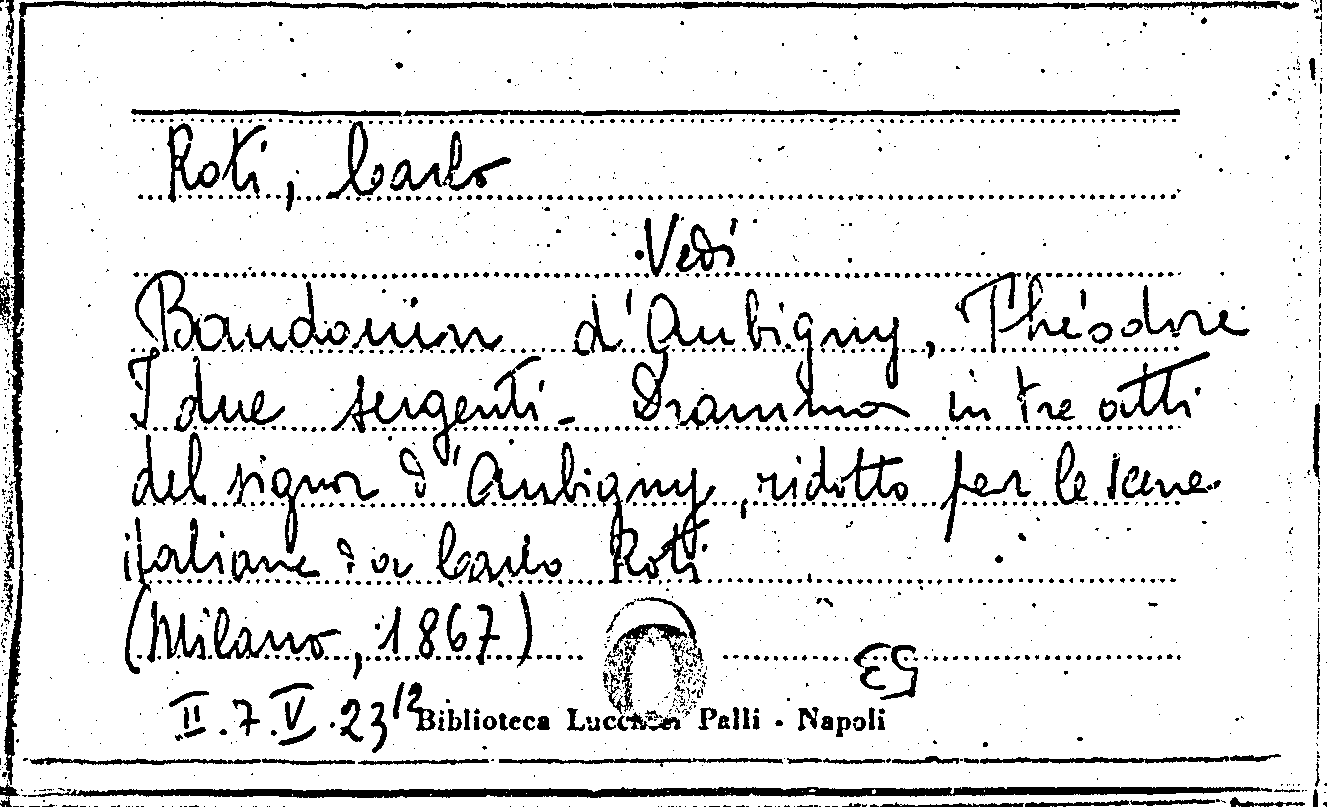 Roti, Carlo
Vedi
Baudouin d'Aubigny, Théodore
I due sergenti - Dramma in tre atti
del signor d'Aubigny, ridotto per le scene
italiane da Carlo Roti
(Milano, 1867)
II.7.V.23¹²
Biblioteca Palli - Napoli